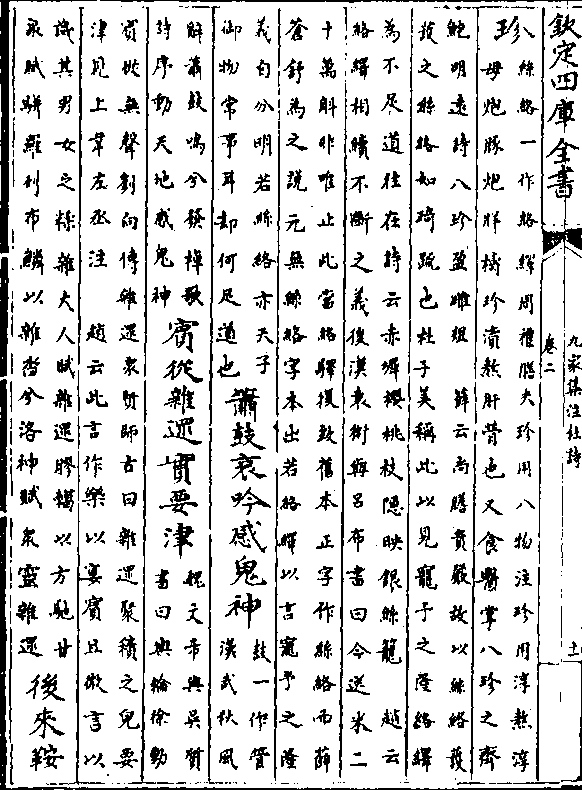 欽定四庫全書
九家集注杜詩
卷二
十一
八珍
絲絡一作絡繹周禮膳夫珍用八物注珍用淳熬淳
母炮豚炮牂擣珍漬熬肝膋也又食醫掌八珍之齊
鮑明遠詩八珍盈雕俎 薛云尚膳貴嚴故以絲絡護
護之絲絡如琦疏也杜子美稱此以見寵予之隆絡繹
為不足道往在詩云赤墀櫻桃枝隱映銀絲籠 趙云
絡繹相續不斷之義後漢袁術與呂布書曰今送米二
十萬斛非唯止此當絡驛復致舊本正字作絲絡而薛
蒼舒為之説元無絲絡字本出若絡驛以言寵予之隆
義自分明若絲絡亦天子
御物常事耳却何足道也
簫鼓哀吟感鬼神
鼓一作管
漢武秋風
辭簫鼓鳴兮發棹歌
詩序動天地感鬼神
賓從雜遝實要津
魏文帝與吳質
書曰輿輪徐動
賓從無聲劉向傳雜遝衆賢師古曰雜遝聚積之皃要
津見上韋左丞注 趙云此言作樂以宴賓且微言以
譏其男女之糅雜大人賦雜遝膠轕以方馳甘
泉賦駢羅列布鱗以雜沓兮洛神賦衆靈雜遝
後來鞍